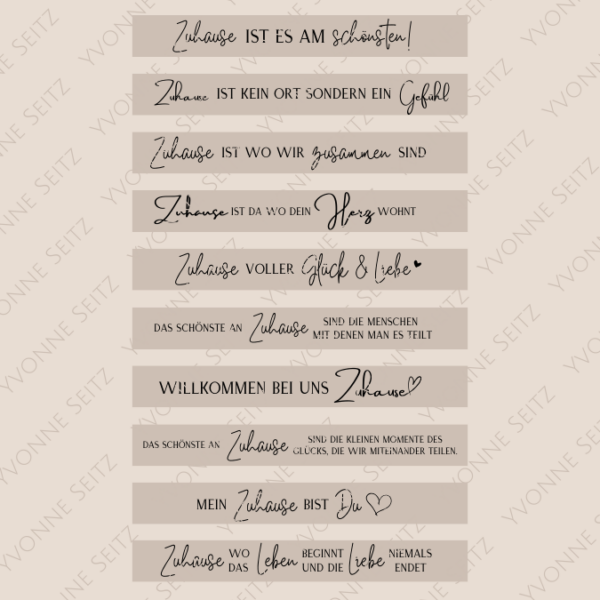 Zuhause IST ES AM schönsten!
Zuhause IST KEIN ORT SONDERN EIN Gefühl
Zuhause IST WO WIR zusammen SIND
Zuhause IST DA WO DEIN Herz WOHNT
Zuhause VOLLER Glück & Liebe
DAS SCHÖNSTE AN Zuhause SIND DIE MENSCHEN
MIT DENEN MAN ES TEILT
WILLKOMMEN BEI UNS Zuhause
DAS SCHÖNSTE AN Zuhause SIND DIE KLEINEN MOMENTE DES
GLÜCKS, DIE WIR MITEINANDER TEILEN.
MEIN Zuhause BIST Du
Zuhause WO DAS Leben BEGINNT UND DIE Liebe NIEMALS ENDET
YVONNE SEITZ